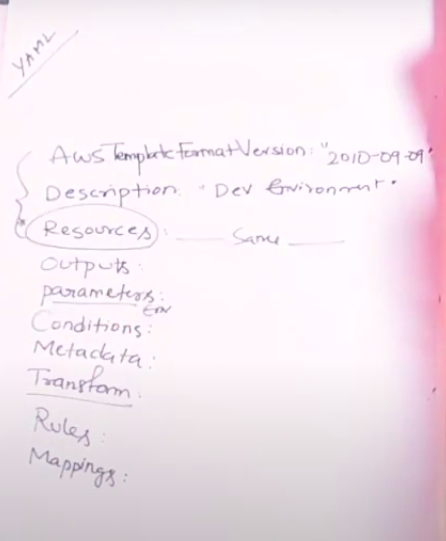 YAML
AWSTemplateFormatVersion: "2010-09-09"
Description: "Dev Environment"
Resources: Same
Outputs:
parameters:
Env
Conditions:
Metadata:
Transform:
Rules:
Mappings: